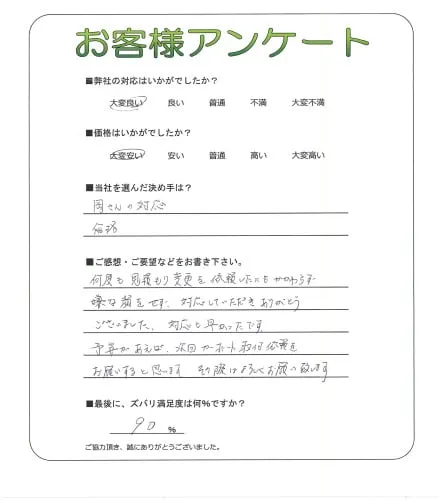 お客様アンケート
■弊社の対応はいかがでしたか？
大変良い 良い 普通 不満 大変不満
■価格はいかがでしたか？
大変安い 安い 普通 高い 大変高い
■当社を選んだ決め手は？
岡さんの対応
価格
■ご感想・ご要望などをお書き下さい。
何度も見積もり変更を依頼したにもかかわらず
嫌な顔をせず、対応していただきありがとう
ございました。対応も早かったです。
予算があえば、次回カーポート取付依頼を
お願いすると思います その際はよろしくお願い致します
■最後に、ズバリ満足度は何%ですか？
90 %
ご協力頂き、誠にありがとうございました。